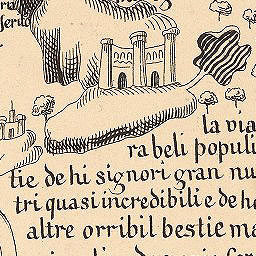 ria
ferit
la via
ra beli populi
tie de hi signori gran nu
tri quasi incredibili e de he
altre orribil bestie ma